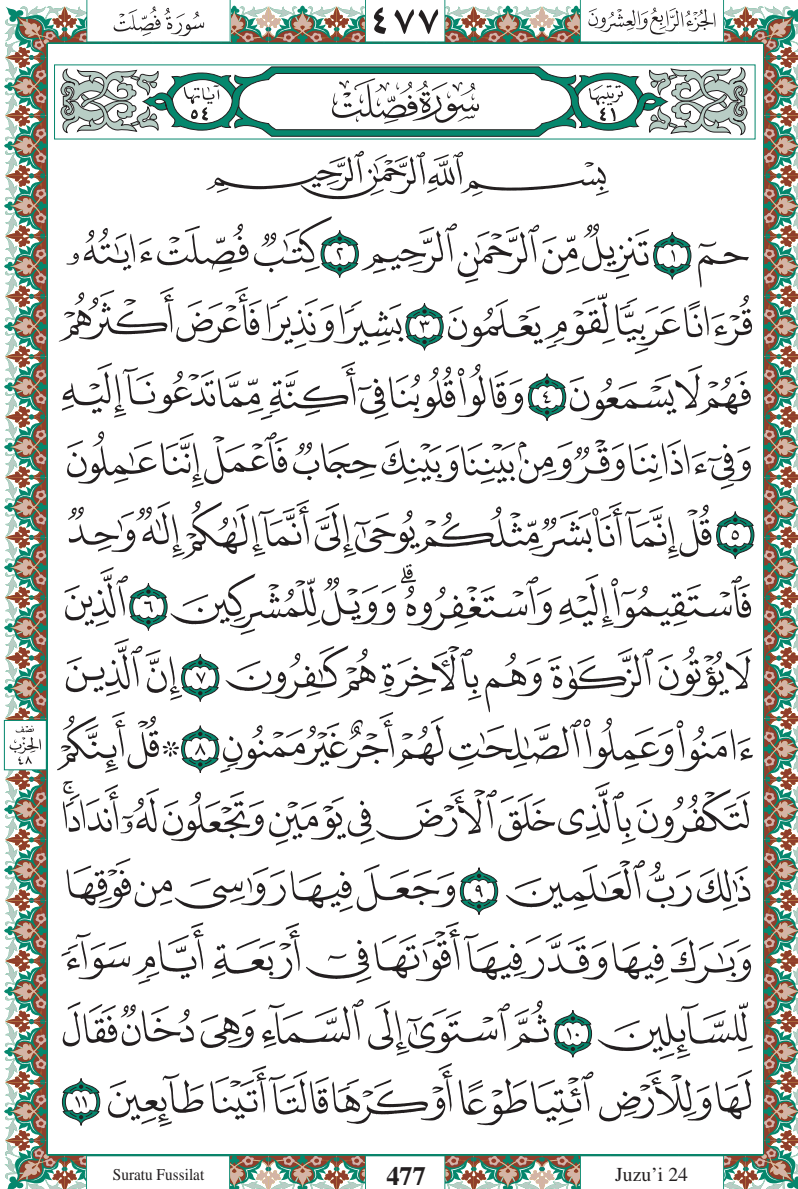 الجُزْءُ الرَّابِعُ وَالعِشْرُونَ ٤٧٧ سُورَةُ فُصِّلَتْ
تَرتيبُها ٤١ سُورَةُ فُصِّلَتْ آيَاتُها ٥٤
بِسْمِ ٱللَّهِ ٱلرَّحْمَٰنِ ٱلرَّحِيمِ
حمٓ ١ تَنزِيلٌ مِّنَ ٱلرَّحْمَٰنِ ٱلرَّحِيمِ ٢ كِتَٰبٌ فُصِّلَتْ ءَايَٰتُهُۥ
قُرْءَانًا عَرَبِيًّا لِّقَوْمٍ يَعْلَمُونَ ٣ بَشِيرًا وَنَذِيرًا فَأَعْرَضَ أَكْثَرُهُمْ
فَهُمْ لَا يَسْمَعُونَ ٤ وَقَالُوا۟ قُلُوبُنَا فِىٓ أَكِنَّةٍ مِّمَّا تَدْعُونَآ إِلَيْهِ
وَفِىٓ ءَاذَانِنَا وَقْرٌ وَمِنۢ بَيْنِنَا وَبَيْنِكَ حِجَابٌ فَٱعْمَلْ إِنَّنَا عَٰمِلُونَ
٥ قُلْ إِنَّمَآ أَنَا۠ بَشَرٌ مِّثْلُكُمْ يُوحَىٰٓ إِلَىَّ أَنَّمَآ إِلَٰهُكُمْ إِلَٰهٌ وَٰحِدٌ
فَٱسْتَقِيمُوٓا۟ إِلَيْهِ وَٱسْتَغْفِرُوهُ ۗ وَوَيْلٌ لِّلْمُشْرِكِينَ ٦ ٱلَّذِينَ
لَا يُؤْتُونَ ٱلزَّكَوٰةَ وَهُم بِٱلْءَاخِرَةِ هُمْ كَٰفِرُونَ ٧ إِنَّ ٱلَّذِينَ
ءَامَنُوا۟ وَعَمِلُوا۟ ٱلصَّٰلِحَٰتِ لَهُمْ أَجْرٌ غَيْرُ مَمْنُونٍ ٨ ۞ قُلْ أَئِنَّكُمْ
نصْف الحِزْب ٤٨
لَتَكْفُرُونَ بِٱلَّذِى خَلَقَ ٱلْأَرْضَ فِى يَوْمَيْنِ وَتَجْعَلُونَ لَهُۥٓ أَندَادًا ۚ
ذَٰلِكَ رَبُّ ٱلْعَٰلَمِينَ ٩ وَجَعَلَ فِيهَا رَوَٰسِىَ مِن فَوْقِهَا
وَبَٰرَكَ فِيهَا وَقَدَّرَ فِيهَآ أَقْوَٰتَهَا فِىٓ أَرْبَعَةِ أَيَّامٍ سَوَآءً
لِّلسَّآئِلِينَ ١٠ ثُمَّ ٱسْتَوَىٰٓ إِلَى ٱلسَّمَآءِ وَهِىَ دُخَانٌ فَقَالَ
لَهَا وَلِلْأَرْضِ ٱئْتِيَا طَوْعًا أَوْ كَرْهًا قَالَتَآ أَتَيْنَا طَآئِعِينَ ١١
Suratu Fussilat 477 Juzu'i 24